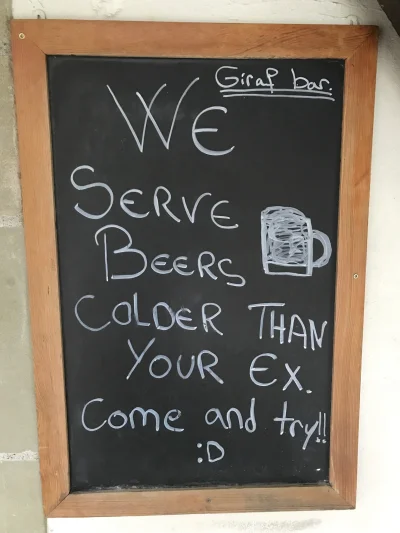 Giraf bar.
WE
SERVE
BEERS
COLDER THAN
YOUR EX.
Come and try!!
:D